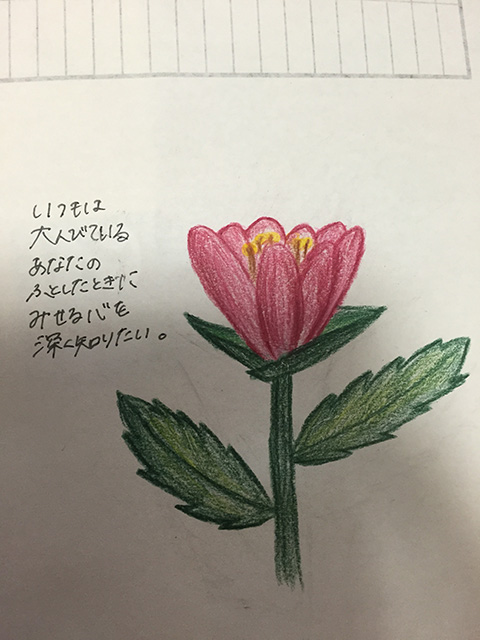 いつもは
大人びている
あなたの
ふとしたときに
みせる心を
深く知りたい。